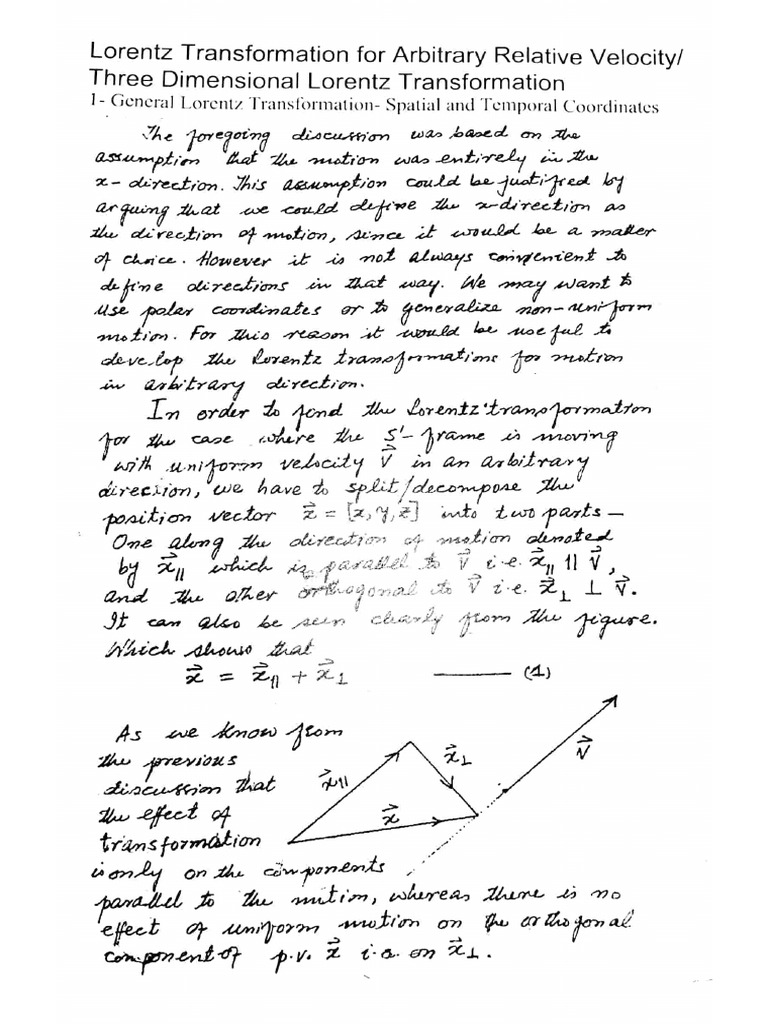 Lorentz Transformation for Arbitrary Relative Velocity/
Three Dimensional Lorentz Transformation
1- General Lorentz Transformation- Spatial and Temporal Coordinates
The foregoing discussion was based on the
assumption that the motion was entirely in the
x-direction. This assumption could be justified by
arguing that we could define the x-direction as
the direction of motion, since it would be a matter
of choice. However it is not always convenient to
define directions in that way. We may want to
use polar coordinates or to generalize non-uniform
motion. For this reason it would be useful to
develop the Lorentz transformations for motion
in arbitrary direction.
In order to find the Lorentz transformation
for the case where the S'-frame is moving
with uniform velocity V⃗ in an arbitrary
direction, we have to split/decompose the
position vector x⃗ = [x, y, z] into two parts —
One along the direction of motion denoted
by x⃗∥ which is parallel to V⃗ i.e. x⃗∥ ∥ V⃗,
and the other orthogonal to V⃗ i.e. x⃗⊥ ⊥ V⃗.
It can also be seen clearly from the figure.
Which shows that
x⃗ = x⃗∥ + x⃗⊥ —— (1)
As we know from
the previous
discussion that
the effect of
transformation
is only on the components
parallel to the mution, whereas there is no
effect of uniform motion on the orthogonal
component of p.v. x⃗ i.e. on x⃗⊥.
x⃗∥
x⃗⊥
x⃗
V⃗